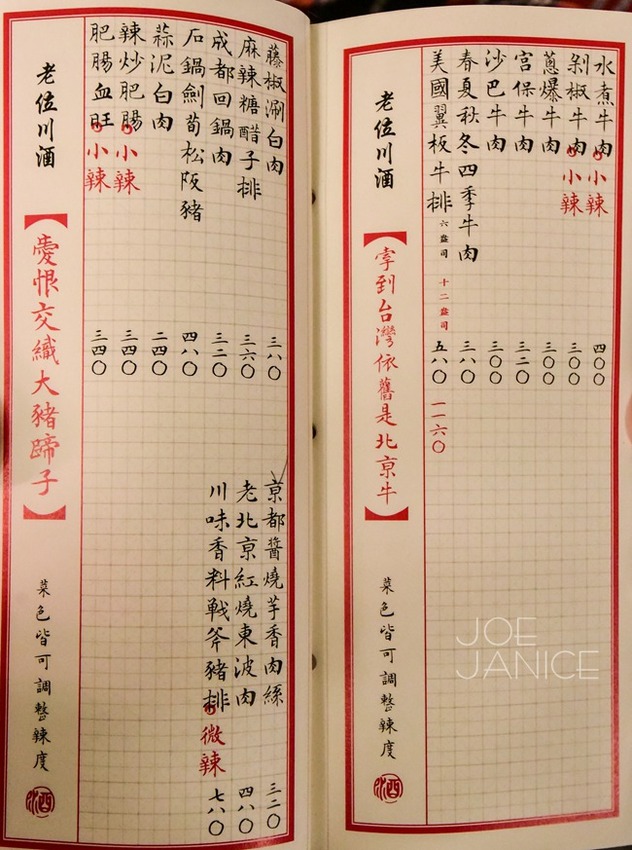 水煮牛肉 小辣 四〇〇
剁椒牛肉 小辣 三〇〇
蔥爆牛肉 三〇〇
宮保牛肉 三二〇
沙巴牛肉 三〇〇
春夏秋冬四季牛肉 三八〇
美國翼板牛排 六盎司 十二盎司 五八〇 一一六〇
老位川酒 【牽到台灣依舊是北亰牛】 菜色皆可調整辣度
藤椒涮白肉 三八〇 亰都醬燒芋香肉絲 三二〇
麻辣糖醋子排 三六〇 老北亰紅燒東波肉 四八〇
成都回鍋肉 三二〇 川味香料戦斧豬排 微辣 七八〇
石鍋劍筍松阪豬 四八〇
蒜泥白肉 二四〇
辣炒肥腸 小辣 三四〇
肥腸血旺 小辣 三四〇
老位川酒 【愛恨交織大豬蹄子】 菜色皆可調整辣度
JOE
JANICE